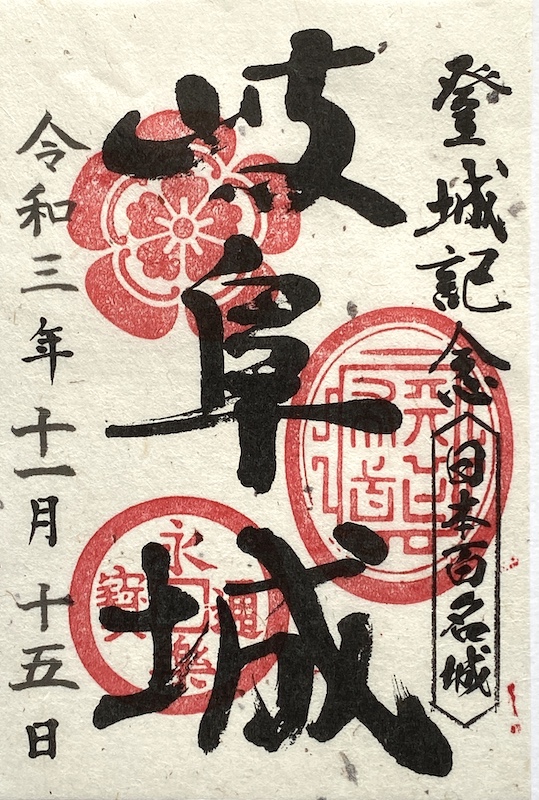 登城記念
日本百名城
岐阜城
永楽通寳
令和三年十一月十五日